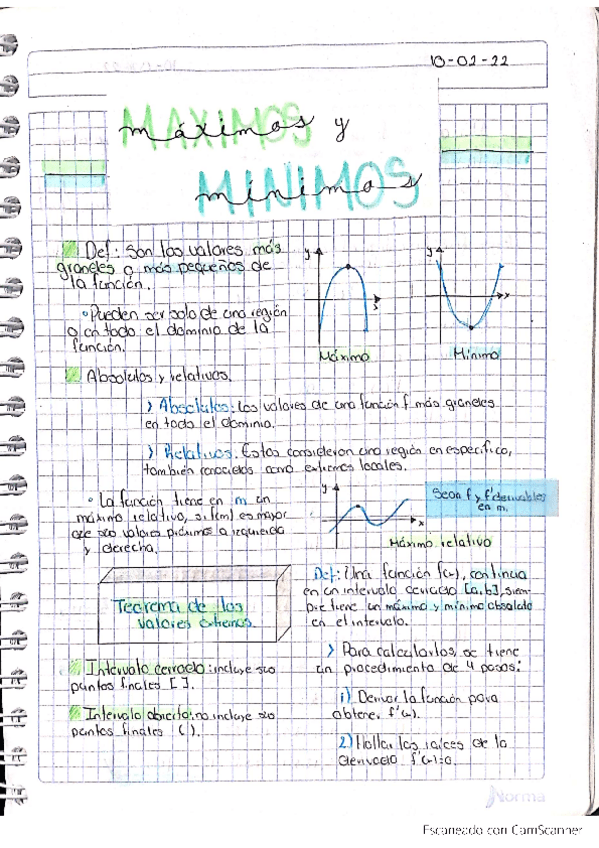 10-02-22
MAXIMOS
máximos y
MINIMOS
mínimos
Def: Son los valores más
grandes o más pequeños de
la función.
• Pueden ser solo de una región
o en todo el dominio de la
función.
y
x
Máximo
y
x
Mínimo
Absolutos y relativos.
> Absolutos: Los valores de una función f más grandes
en todo el dominio.
> Relativos: Estos consideran una región en especifico,
también conocidos como extremos locales.
• La función tiene en m un
máximo relativo, si f(m) es mayor
que sus valores próximos a izquierda
y derecha.
y
x
Sean f y f' derivables
en m.
Máximo relativo
Teorema de los
valores extremos.
Intervalo cerrado: incluye sus
puntos finales [ ].
Intervalo abierto: no incluye sus
puntos finales ( ).
Def: Una función f(x), continua
en un intervalo cerrado [a,b], siem-
pre tiene un máximo y mínimo absoluto
en el intervalo.
> Para calcularlos se tiene
un procedimiento de 4 pasos:
1) Derivar la función para
obtener f'(x).
2) Hallar las raíces de la
derivada f'(x)=0.
Norma
Escaneado con CamScanner